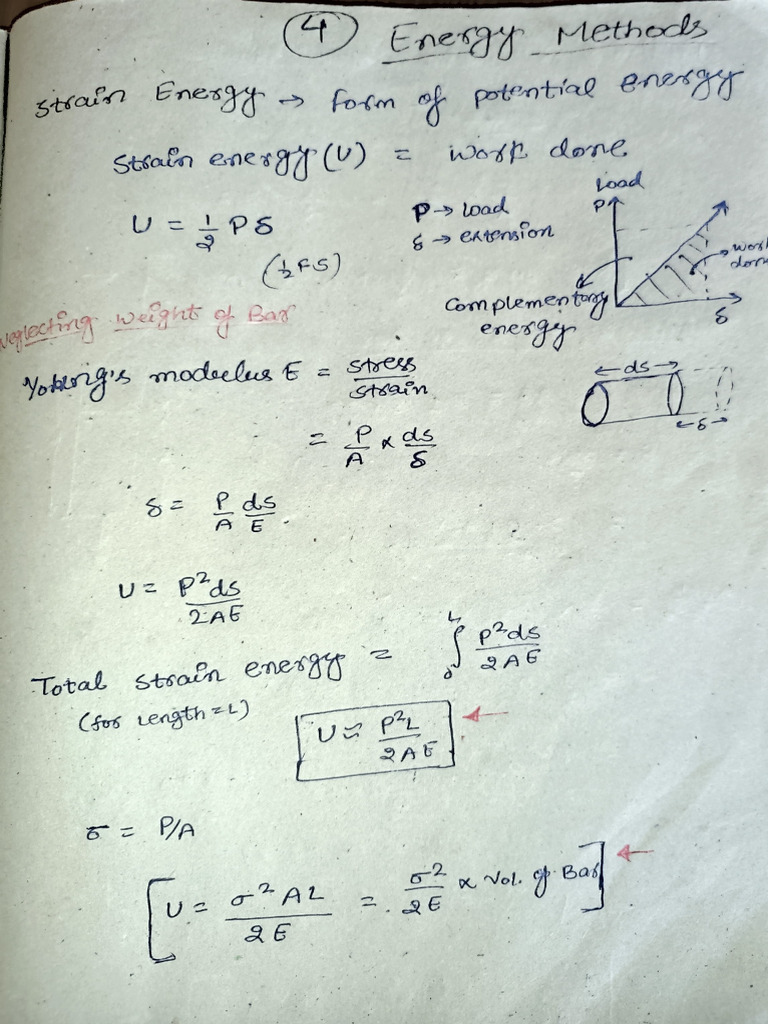 4 Energy Methods
Strain Energy → form of potential energy
Strain energy (U) = work done
U = 1/2 Pδ
(1/2 FS)
P → load
δ → extension
Load
P
work done
δ
Complementary energy
Neglecting weight of Bar
Young's modulus E = stress/strain
= P/A × ds/δ
ds
δ
δ = P/A ds/E
U = P²ds/2AE
Total strain energy = ∫₀ᴸ P²ds/2AE
(for length = L)
U = P²L/2AE
σ = P/A
[U = σ² AL/2E = σ²/2E × Vol. of Bar]